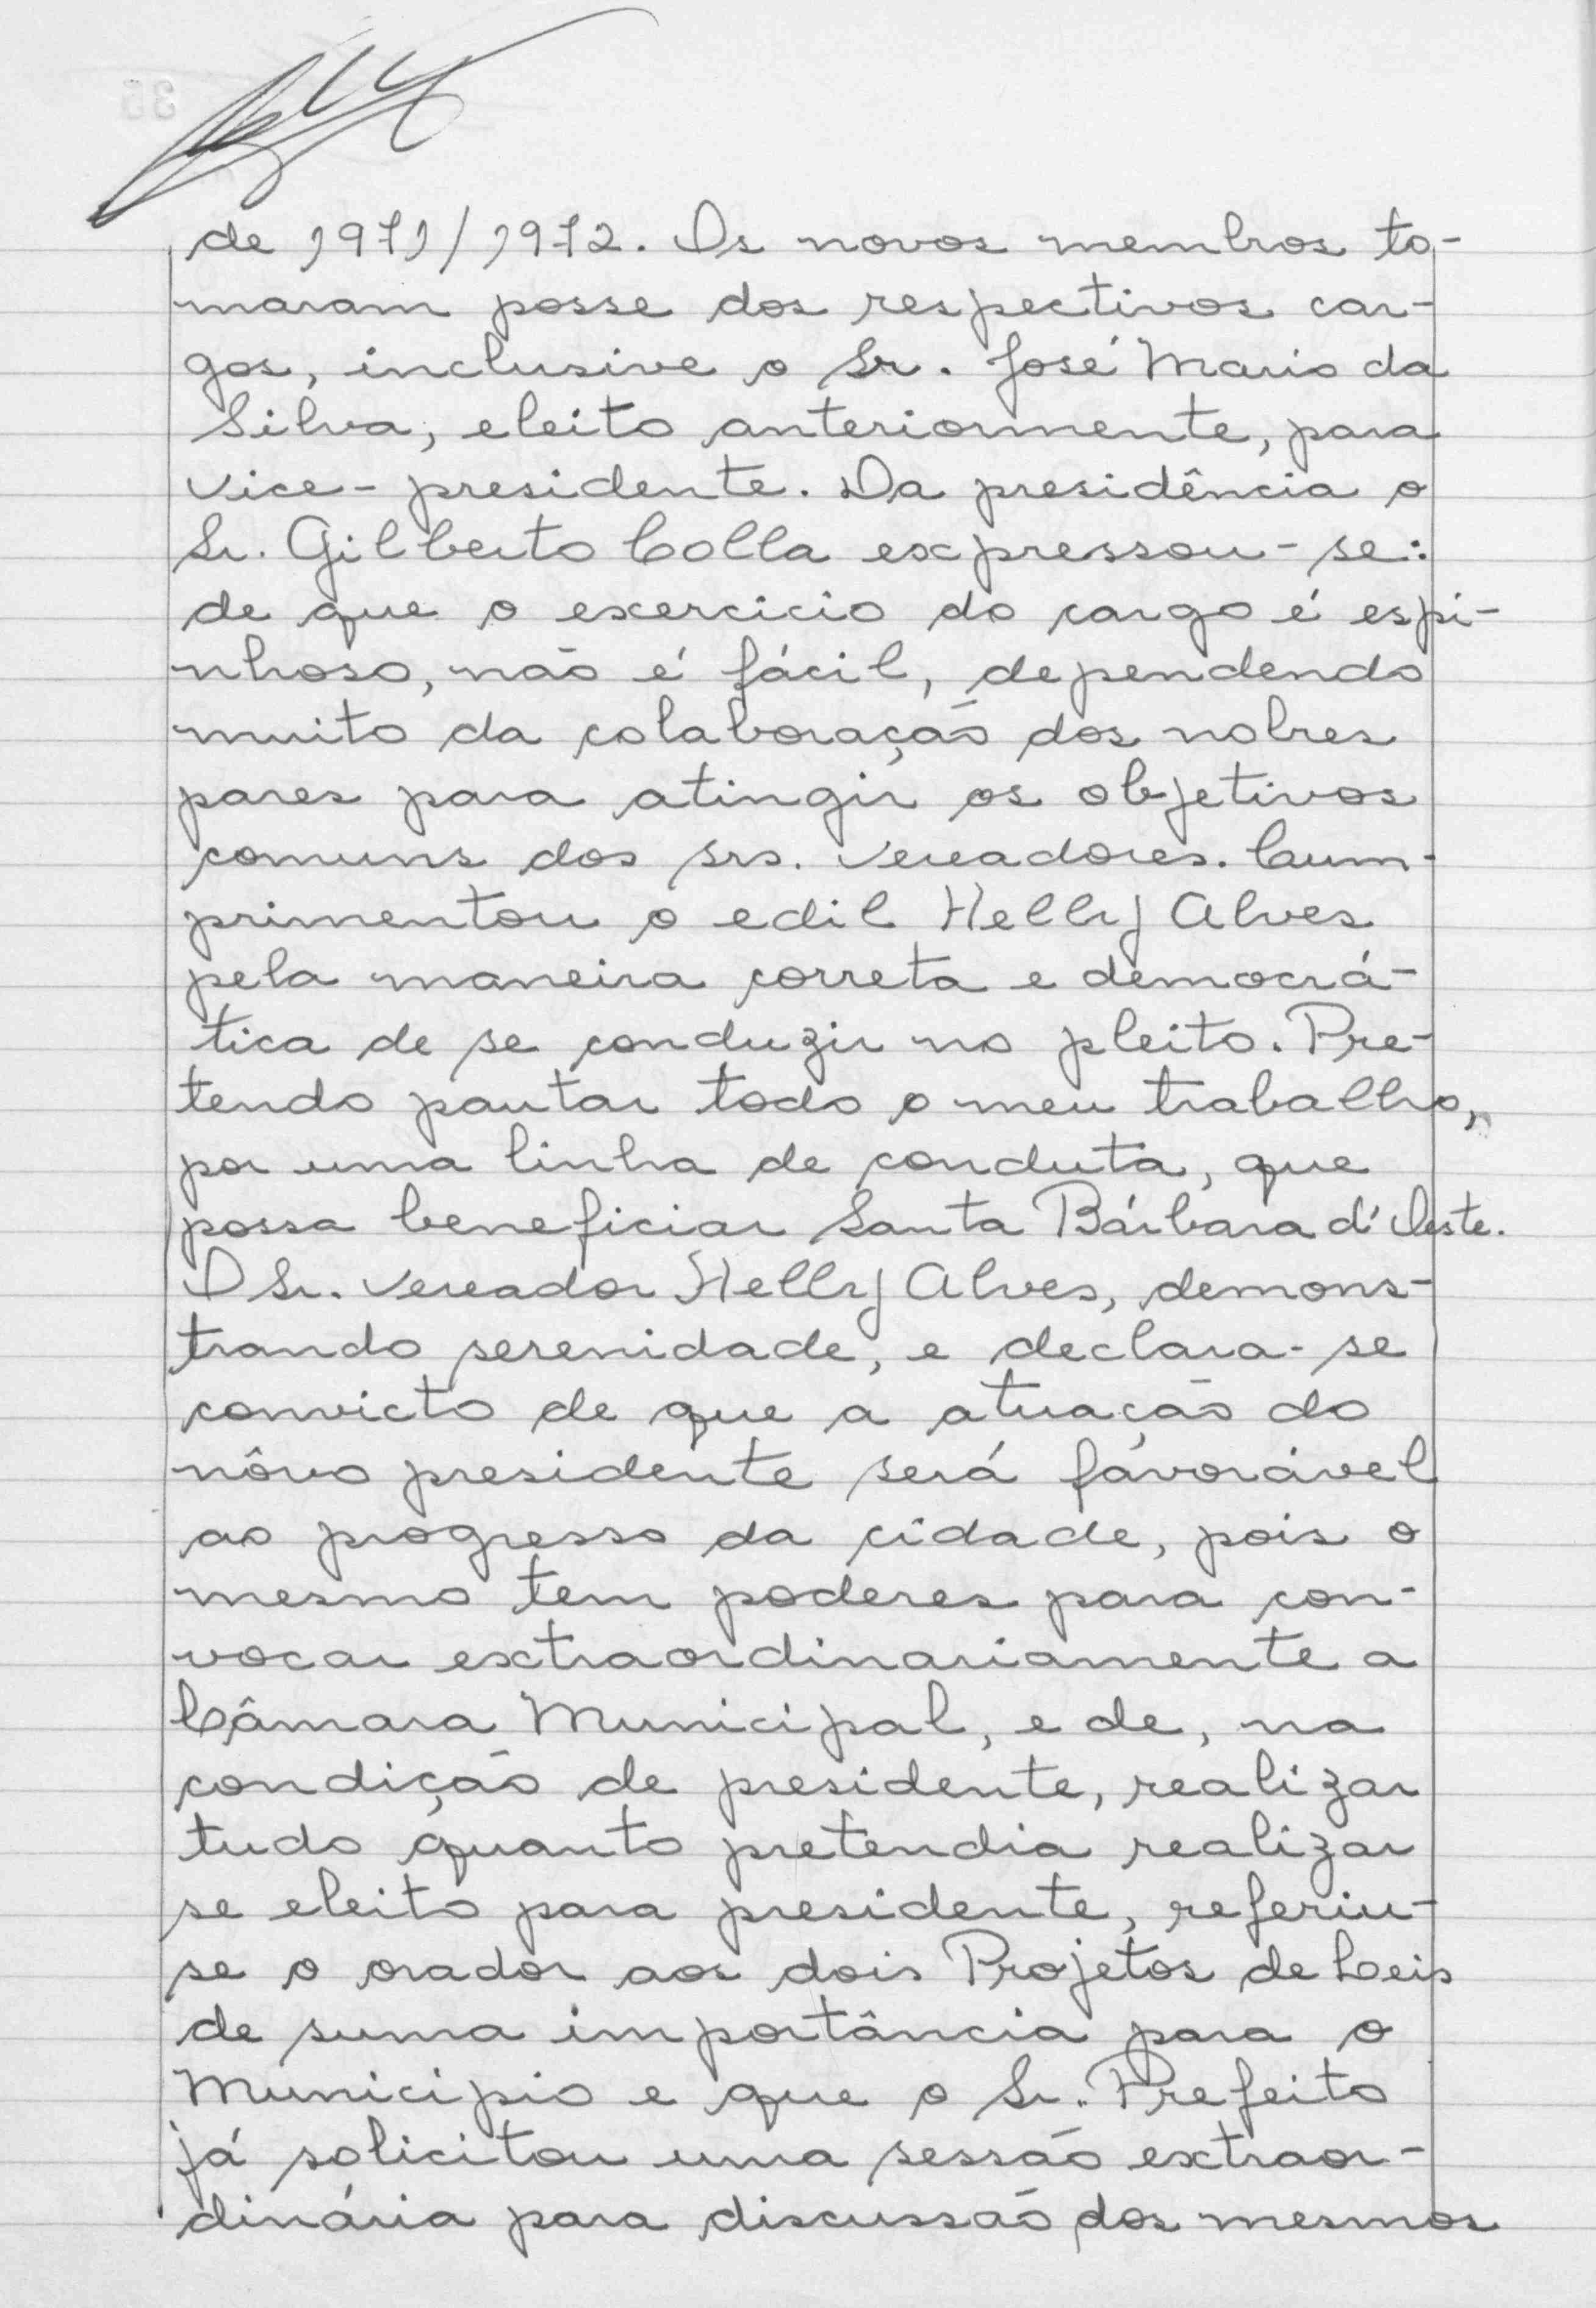 de 1971/1972. Os novos membros to-
maram posse dos respectivos car-
gos, inclusive o Sr. José Mario da
Silva, eleito anteriormente, para
vice-presidente. Da presidência o
Sr. Gilberto Colla expressou-se:
de que o exercicio do cargo é espi-
nhoso, não é fácil, dependendo
muito da colaboração dos nobres
pares para atingir os objetivos
comuns dos srs. vereadores. Cum-
primentou o edil Helly Alves
pela maneira correta e democrá-
tica de se conduzir no pleito. Pre-
tendo pautar todo o meu trabalho,
por uma linha de conduta, que
possa beneficiar Santa Bárbara d'Oeste.
O Sr. vereador Helly Alves, demons-
trando serenidade, e declara-se
convicto de que a atuação do
nôvo presidente será favorável
ao progresso da cidade, pois o
mesmo tem poderes para con-
vocar extraordinariamente a
Câmara Municipal, e de, na
condição de presidente, realizar
tudo quanto pretendia realizar
se eleito para presidente, referiu-
se o orador aos dois Projetos de Leis
de suma importância para o
Municipio e que o Sr. Prefeito
já solicitou uma sessão extraor-
dinária para discussão dos mesmos